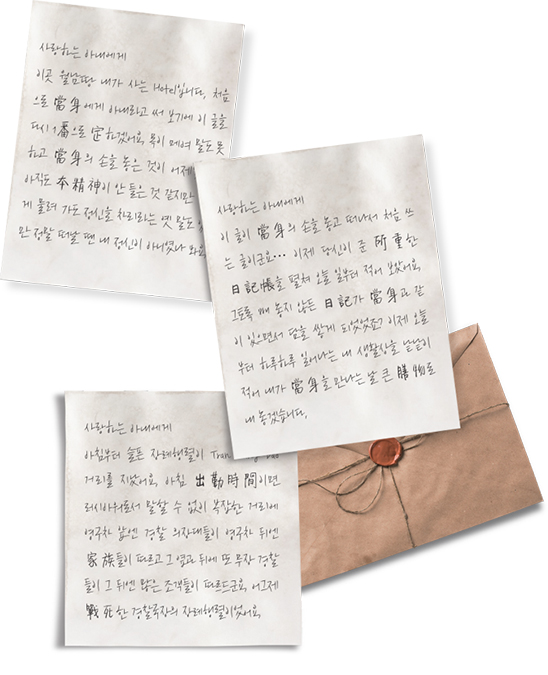 사랑하는 아내에게
이곳 월남땅 내가 사는 Hotel입니다. 처음
으로 當身에게 아내라고 써 보기에 이 글을
다시 1番으로 定하겠어요. 목이 메여 말도 못
하고 當身의 손을 놓은 것이 어제
아직도 本精神이 안 들은 것 같지만
게 물려 가도 정신을 차리라는 옛 말도
만 정말 떠날 땐 내 정신이 아니였나 봐요.
사랑하는 아내에게
이 글이 當身의 손을 놓고 떠나서 처음 쓰
는 글이군요… 이제 당신이 준 所重한
日記帳을 펼쳐 오늘 일부터 적어 보았어요.
그토록 떼 놓지 않든 日記가 當身과 같
이 있으면서 담을 쌓게 되었었죠? 이제 오늘
부터 하루하루 일어나는 내 생활상을 낱낱이
적어 내가 當身을 만나는 날 큰 膳物로
내 놓겠습니다.
사랑하는 아내에게
아침부터 슬픈 장례행렬이
거리를 지났어요. 아침 出勤時間이면
러시아워로서 말할 수 없이 복잡한 거리에
영구차 앞엔 경찰 의장대들이 영구차 뒤엔
家族들이 따르고 그 옆과 뒤에 또 무장 경찰
들이 그 뒤엔 많은 조객들이 따르드군요. 어그제
戰死한 경찰국장의 장례행렬이었어요.